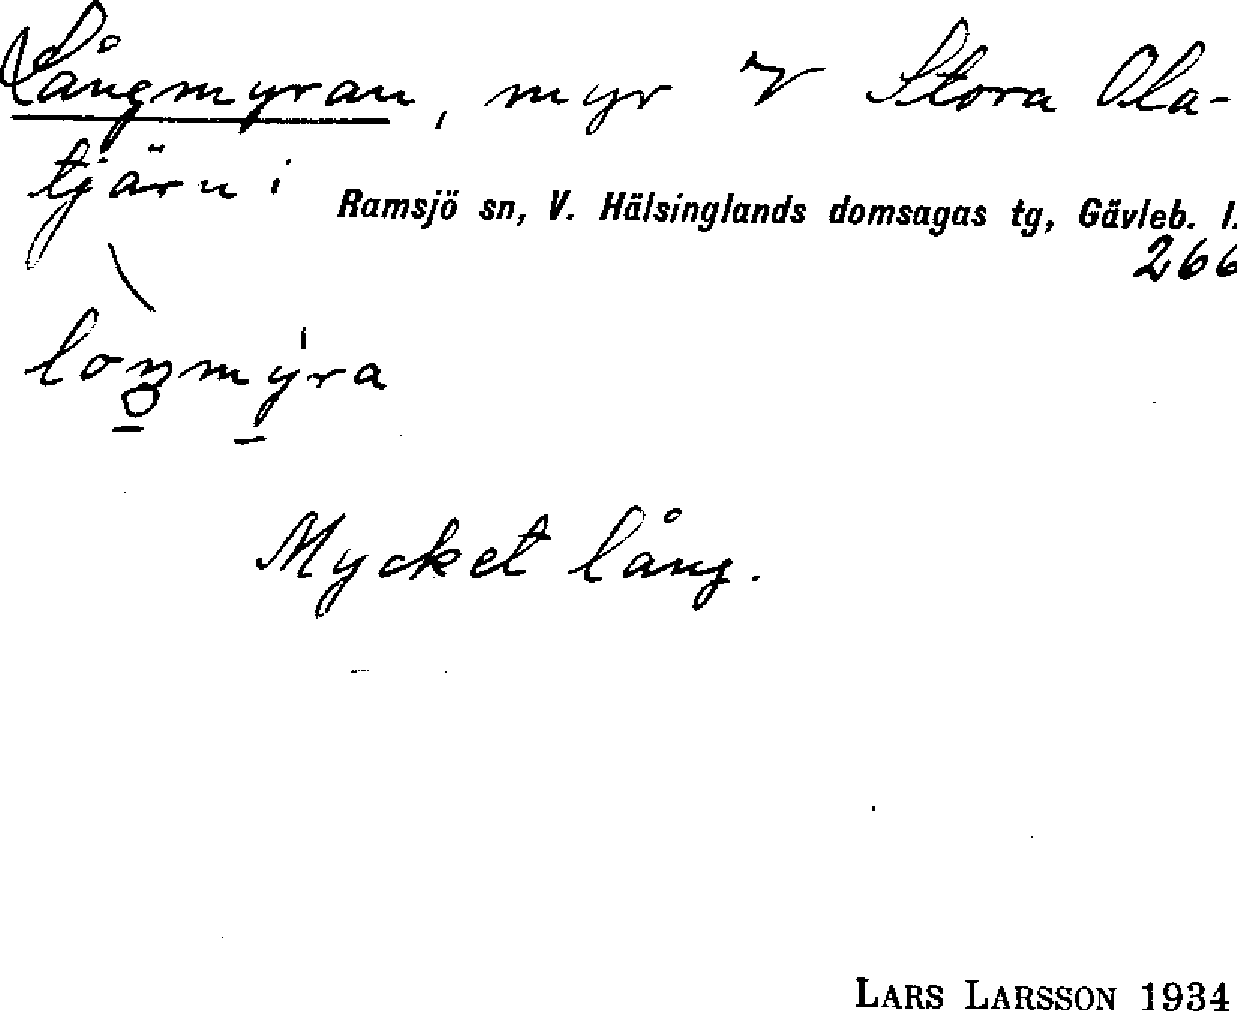 Långmyran, myr v Stora Ola-
tjärn i
Ramsjö sn, V. Hälsinglands domsagas tg, Gävleb. l.
266
Mycket lång.
LARS LARSSON 1934